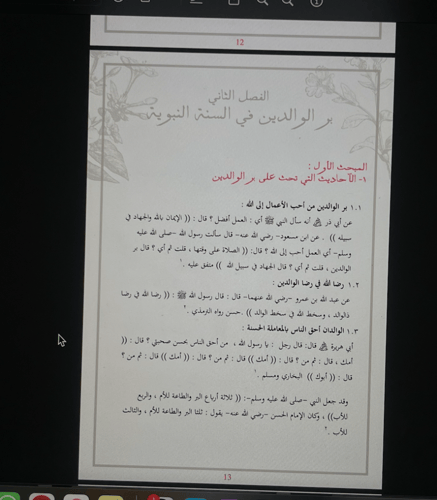 12
الفصل الثاني
بر الوالدين في السنة النبوية
المبحث الأول :
١- الأحاديث التي تحث على بر الوالدين
١.١ بر الوالدين من أحب الأعمال إلى الله :
عن أبي ذر ﷺ أنه سأل النبي ﷺ أي : العمل أفضل ؟ قال : (( الإيمان بالله والجهاد في
سبيله )) . عن ابن مسعود- رضي الله عنه- قال سألت رسول الله -صلى الله عليه
وسلم- أي العمل أحب إلى الله ؟ قال: (( الصلاة على وقتها ، قلت ثم أي ؟ قال بر
الوالدين ، قلت ثم أي ؟ قال الجهاد في سبيل الله )) متفق عليه .
١.٢ رضا الله في رضا الوالدين :
عن عبد الله بن عمرو -رضي الله عنهما- قال : قال رسول الله ﷺ : (( رضا الله في رضا
ذالوالد ، وسخط الله في سخط الوالد )) .حسن رواه الترمذي .
١.٣ الوالدان أحق الناس بالمعاملة الحسنة :
أبي هريرة قال: قال رجل : يا رسول الله ، من أحق الناس بحسن صحبتي ؟ قال : ((
أمك ، قال : ثم من ؟ قال : (( أمك )) قال : ثم من ؟ قال : (( أمك )) قال : ثم من ؟
قال : (( أبوك )) البخاري ومسلم .
وقد جعل النبي -صلى الله عليه وسلم-: (( ثلاثة أرباع البر والطاعة للأم ، والربع
للأب)) ، وكان الإمام الحسن -رضي الله عنه- يقول : ثلثا البر والطاعة للأم ، والثالث
للأب .
13